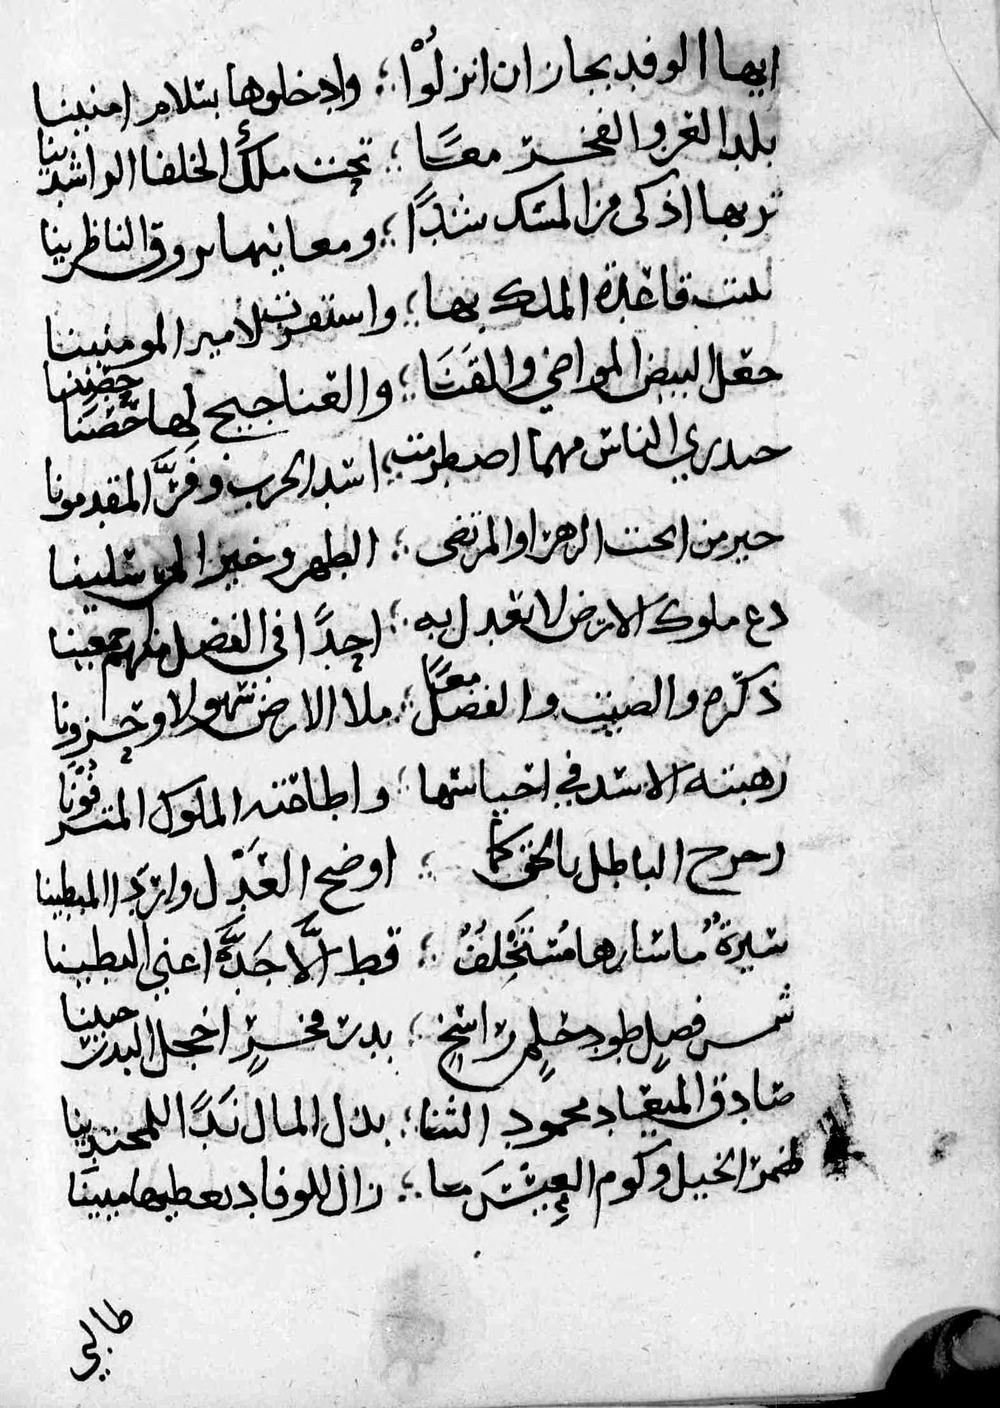 ايها الوفد بجازان انزلوا ؛ وادخلوها بسلام امنينا
بلد العز والفخر معا ؛ تحت ملك الخلفا الراشدينا
تربها اذكى من المسك شذا ؛ ومعانيها يروق الناظرينا
قاعدة الملك بها ؛ واستقرت لامير المومنينا
جعل البيض المواضي والقنا ؛ والعناجيج لها حصنا حصينا
حيدري الناس مهما اضطرمت ؛ اسد الحرب وفر المقدمونا
خير من الزهرا والمرتضى ؛ الطهر وخير المرسلينا
دع ملوك الارض لا تعدل به ؛ احدا في الفضل منهم جمعينا
ذكره والصيت والفضل معا ؛ ملا الارض سهولا وحزونا
رهبته الاسد في اخياسها ؛ واطاعته الملوك المترفونا
زحزح الباطل بالحق كما ؛ اوضح العدل واردا المبطلينا
سيرة ما سارها مستخلف ؛ قط الا جده اعني البطينا
شمس فضل طود حلم راسخ ؛ بدر فخر اخجل البدر جبينا
صادق الميعاد محمود الثنا ؛ بذل المال ندا للمجتدينا
ضمر الخيل وكوم العيس معا ؛ زال للوفاد يعطيها مبينا
طالبي